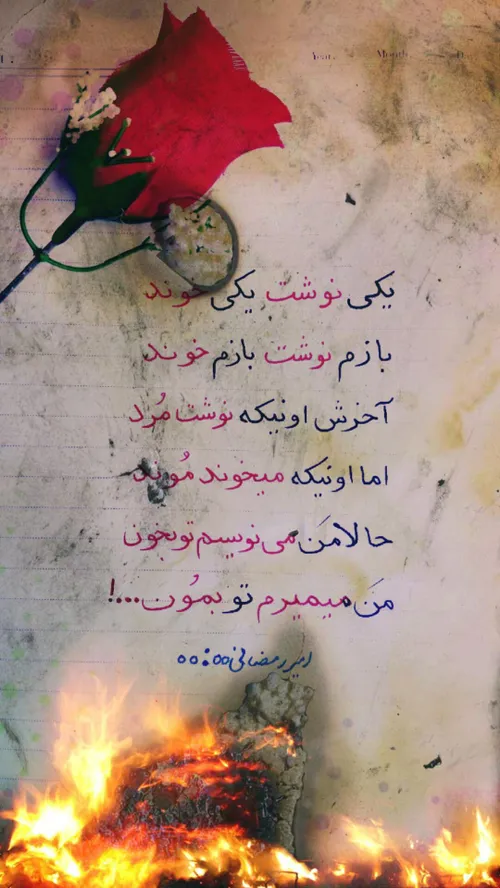 Year. Month. D
یکی نوشت یکی خوند
بازم نوشت بازم خوند
آخرش اونیکه نوشت مُرد
اما اونیکه میخوند مُوند
حالا مَن می نویسم تو بخون
مَن میمیرم تو بمُون...!
امیر رمضانی ۰۰:۰۰